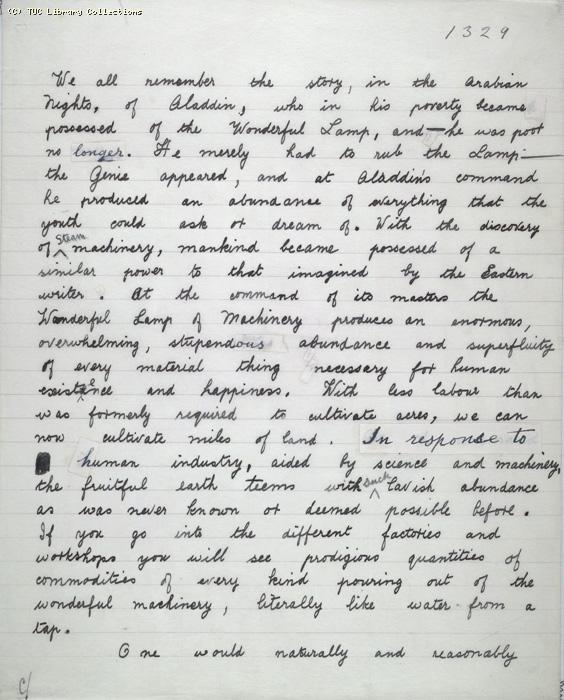 (C) TUC Library Collections
1329
We all remember the story, in the Arabian
Nights, of Aladdin, who in his poverty became
possessed of the Wonderful Lamp, and—he was poor
no longer. He merely had to rub the Lamp—
the Genie appeared, and at Aladdin's command
he produced an abundance of everything that the
youth could ask or dream of. With the discovery
of steam machinery, mankind became possessed of a
similar power to that imagined by the Eastern
writer. At the command of its masters the
Wonderful Lamp of Machinery produces an enormous,
overwhelming, stupendous abundance and superfluity
of every material thing necessary for human
existence and happiness. With less labour than
was formerly required to cultivate acres, we can
now cultivate miles of land. In response to
human industry, aided by science and machinery,
the fruitful earth teems with such lavish abundance
as was never known or deemed possible before.
If you go into the different factories and
workshops you will see prodigious quantities of
commodities of every kind pouring out of the
wonderful machinery, literally like water from a
tap.
One would naturally and reasonably